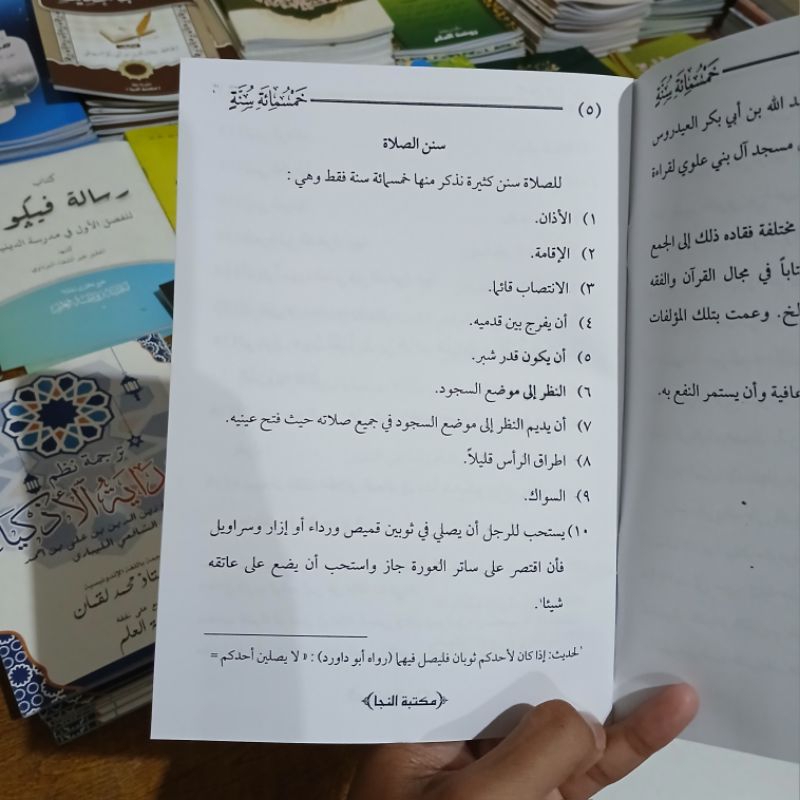 خمسمائة سنة
(٥)
سنن الصلاة
للصلاة سنن كثيرة نذكر منها خمسمائة سنة فقط وهي :
١) الأذان.
٢) الإقامة.
٣) الانتصاب قائما.
٤) أن يفرج بين قدميه.
٥) أن يكون قدر شبر.
٦) النظر إلى موضع السجود.
٧) أن يديم النظر إلى موضع السجود في جميع صلاته حيث فتح عينيه.
٨) اطراق الرأس قليلاً.
٩) السواك.
١٠) يستحب للرجل أن يصلي في ثوبين قميص ورداء أو إزار وسراويل
فأن اقتصر على ساتر العورة جاز واستحب أن يضع على عاتقه
شيئا١.
١لحديث: إذا كان لأحدكم ثوبان فليصل فيهما (رواه أبو داورد) : « لا يصلين أحدكم =
(مكتبة النجا)
خمسمائة سنة
د الله بن أبي بكر العيدروس
مسجد آل بني علوي لقراءة
مختلفة فقاده ذلك إلى الجمع
تاباً في مجال القرآن والفقه
لخ. وعمت بتلك المؤلفات
عافية وأن يستمر النفع به.
كتاب
رسالة فيكو
للفصل الأول في مدرسة الدينية
ترجمة نظم
داية الأذكيا
تاذ محمد لقمان
ة العلم